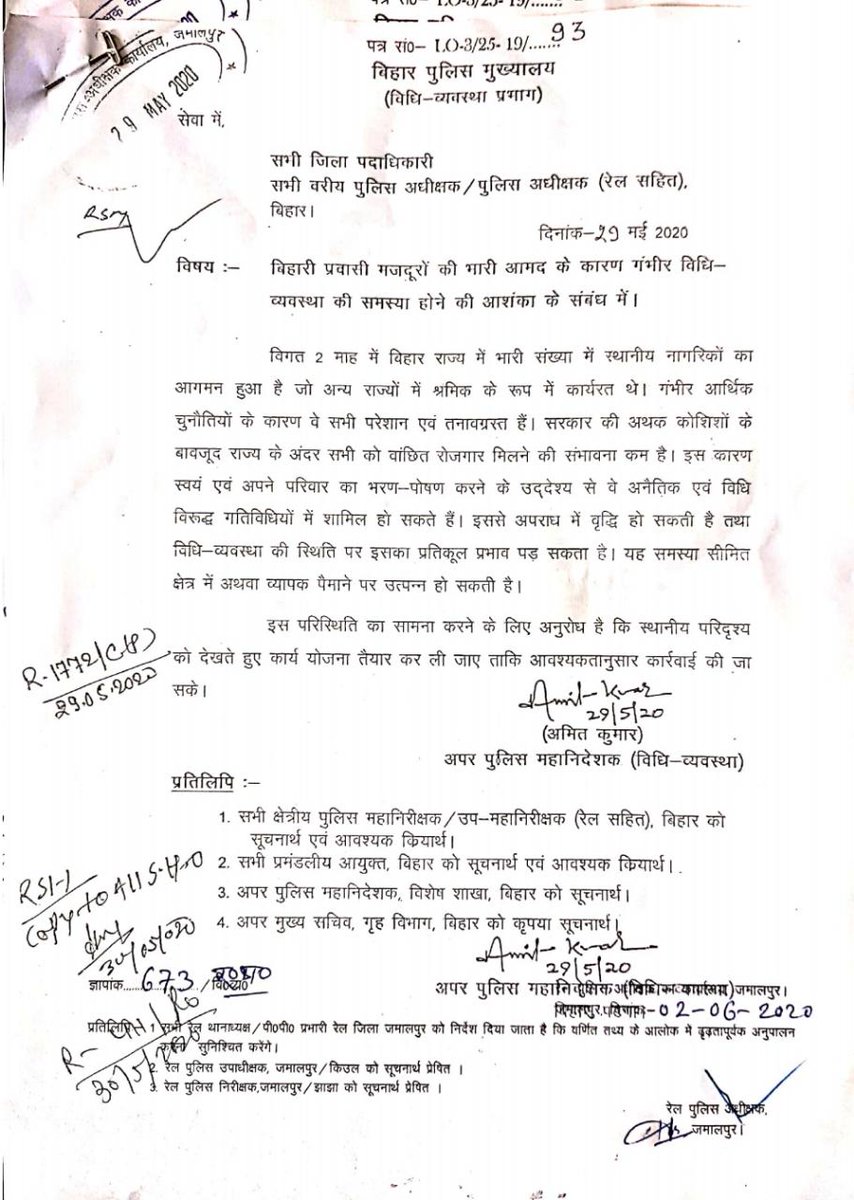 पत्र सं०– L.O-3/25-19/.......
पत्र सं०– L.O-3/25-19/......93
बिहार पुलिस मुख्यालय
(विधि–व्यवस्था प्रभाग)
अधीक्षक कार्यालय, जमालपुर
29 MAY 2020
सेवा में,
सभी जिला पदाधिकारी
सभी वरीय पुलिस अधीक्षक/पुलिस अधीक्षक (रेल सहित),
बिहार।
दिनांक–29 मई 2020
विषय :– बिहारी प्रवासी मजदूरों की भारी आमद के कारण गंभीर विधि–
व्यवस्था की समस्या होने की आशंका के संबंध में।
विगत 2 माह में बिहार राज्य में भारी संख्या में स्थानीय नागरिकों का
आगमन हुआ है जो अन्य राज्यों में श्रमिक के रूप में कार्यरत थे। गंभीर आर्थिक
चुनौतियों के कारण वे सभी परेशान एवं तनावग्रस्त हैं। सरकार की अथक कोशिशों के
बावजूद राज्य के अंदर सभी को वांछित रोजगार मिलने की संभावना कम है। इस कारण
स्वयं एवं अपने परिवार का भरण–पोषण करने के उद्देश्य से वे अनैतिक एवं विधि
विरूद्ध गतिविधियों में शामिल हो सकते हैं। इससे अपराध में वृद्धि हो सकती है तथा
विधि–व्यवस्था की स्थिति पर इसका प्रतिकूल प्रभाव पड़ सकता है। यह समस्या सीमित
क्षेत्र में अथवा व्यापक पैमाने पर उत्पन्न हो सकती है।
इस परिस्थिति का सामना करने के लिए अनुरोध है कि स्थानीय परिदृश्य
को देखते हुए कार्य योजना तैयार कर ली जाए ताकि आवश्यकतानुसार कार्रवाई की जा
सके।
R-1772/(C/P)
29.05.2020
Amit Kumar
29/5/20
(अमित कुमार)
अपर पुलिस महानिदेशक (विधि–व्यवस्था)
प्रतिलिपि :–
1. सभी क्षेत्रीय पुलिस महानिरीक्षक/उप–महानिरीक्षक (रेल सहित), बिहार को
सूचनार्थ एवं आवश्यक क्रियार्थ।
2. सभी प्रमंडलीय आयुक्त, बिहार को सूचनार्थ एवं आवश्यक क्रियार्थ।
3. अपर पुलिस महानिदेशक, विशेष शाखा, बिहार को सूचनार्थ।
4. अपर मुख्य सचिव, गृह विभाग, बिहार को कृपया सूचनार्थ।
RSI-1
Copy to All S.H.O
30/05/020
Amit Kumar
29/5/20
अपर पुलिस महानिदेशक (विधि–व्यवस्था)
ज्ञापांक......673...../
जमालपुर।
02-06-2020
प्रतिलिपि 1 सभी रेल थानाध्यक्ष/पी०पी० प्रभारी रेल जिला जमालपुर को निर्देश दिया जाता है कि वर्णित तथ्य के आलोक में दृढ़तापूर्वक अनुपालन
सुनिश्चित करेंगे।
2. रेल पुलिस उपाधीक्षक, जमालपुर/किउल को सूचनार्थ प्रेषित ।
3. रेल पुलिस निरीक्षक,जमालपुर/झाझा को सूचनार्थ प्रेषित ।
रेल पुलिस अधीक्षक,
जमालपुर।